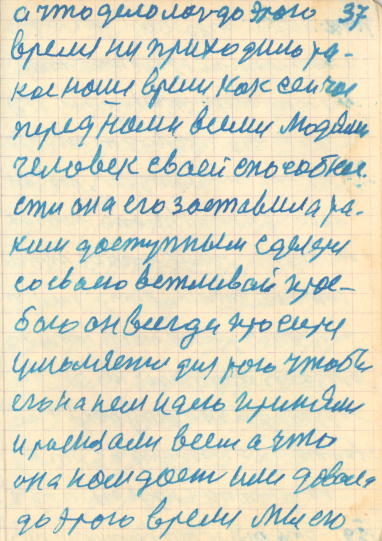 а что делолоч до этого 37
время ни приходило та-
кое наше время как сейчас
перед нами всеми людями
человек своей способно-
сти она его заставила та-
ким доступным сделан
со своею вежливай прос-
бою он всегда просит и
умоляет для того чтобы
его на нем идею приняли
и рассказали всем а что
она нам дает или давала
до этого время мы ею